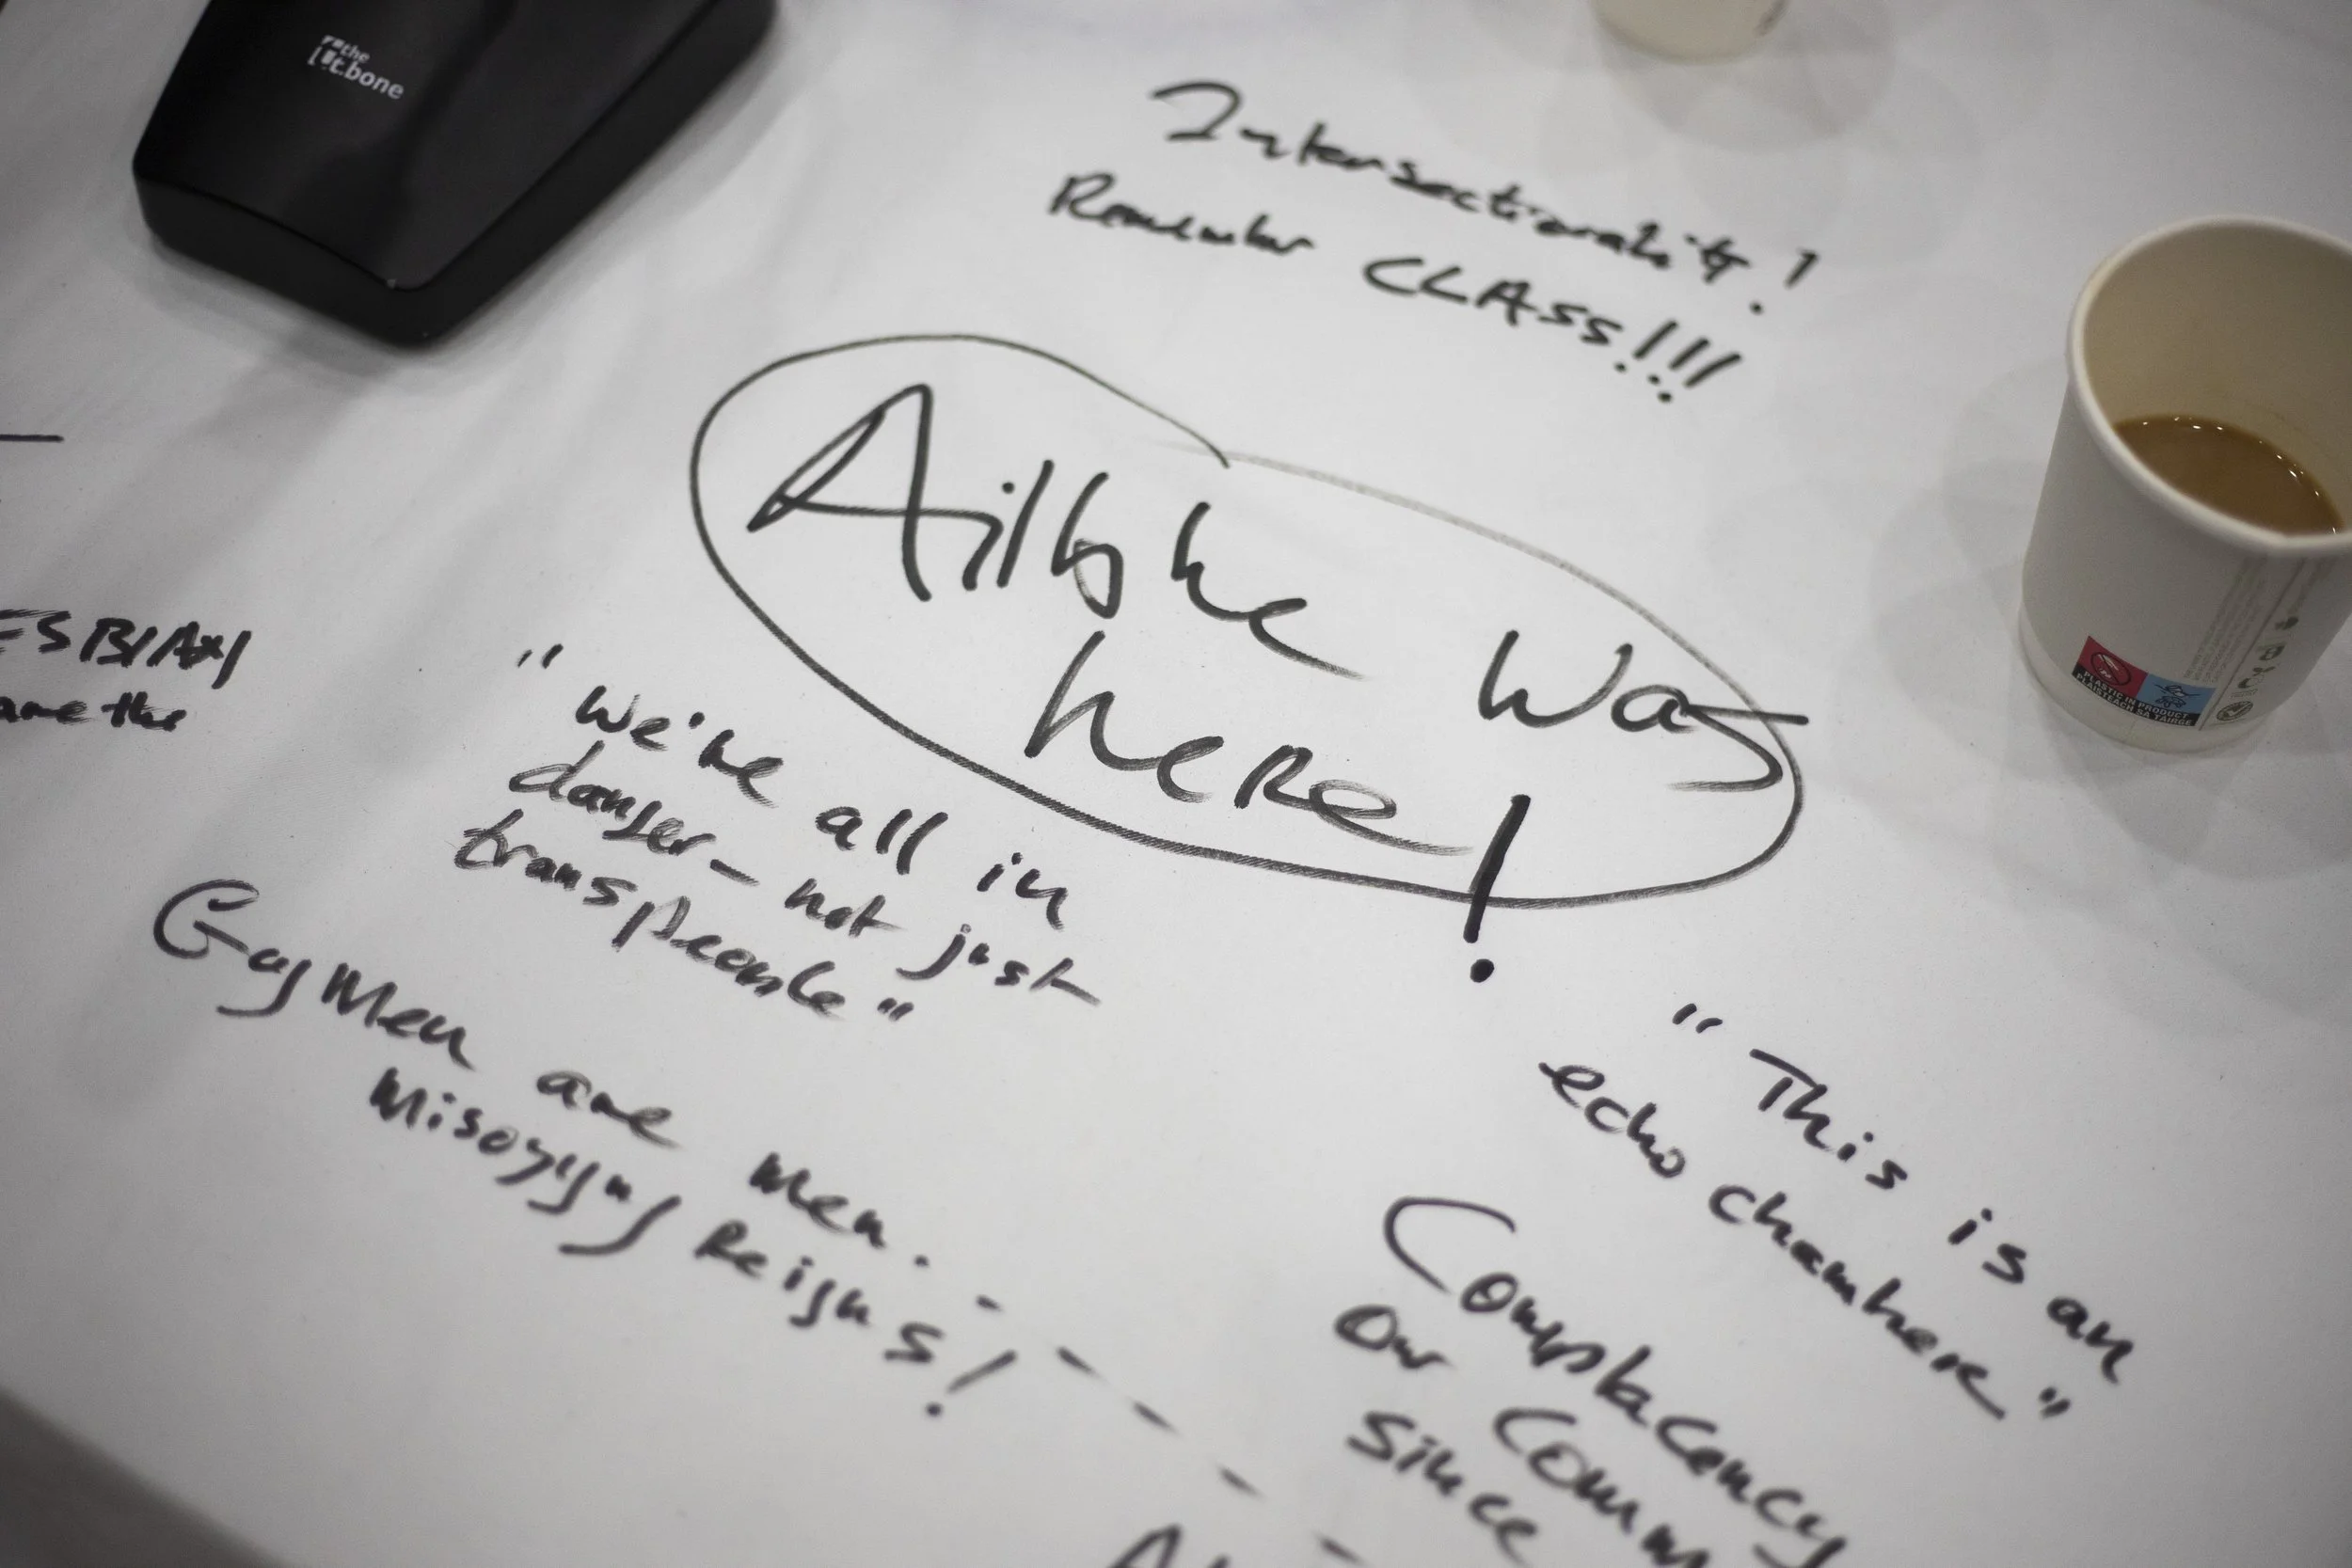 the
t.bone
Intersectionality!
Remember CLASS!!!
Ailbhe was
here!
ESBIAN
are the
"We're all in
danger – not just
trans people"
Gay Men are Men.
Misogyny Reigns!
"This is an
echo chamber"
Complacency
Our Comm
Since
PLASTIC IN PRODUCT
PLAISTEACH SA TÁIRGE